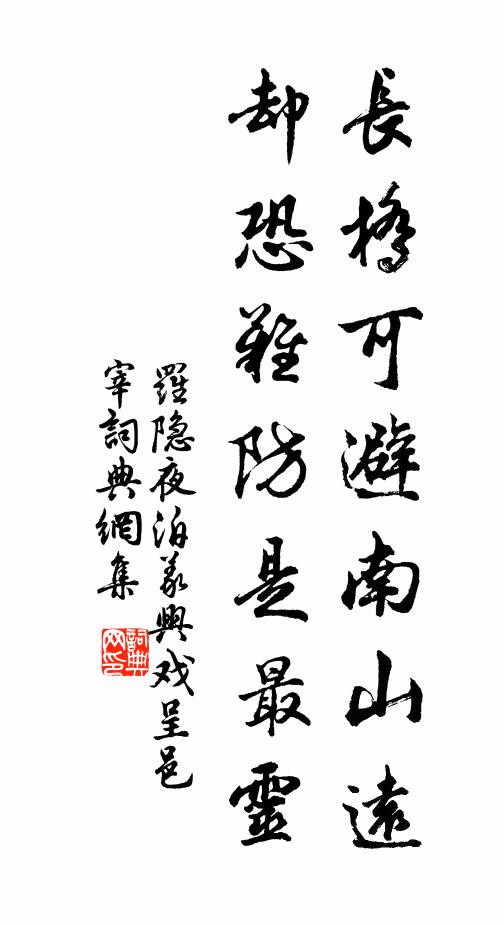 長橋可避南山遠
却恐難防是最靈
羅隐夜泊義興戏呈邑
宰詞典網集
詞典
网印